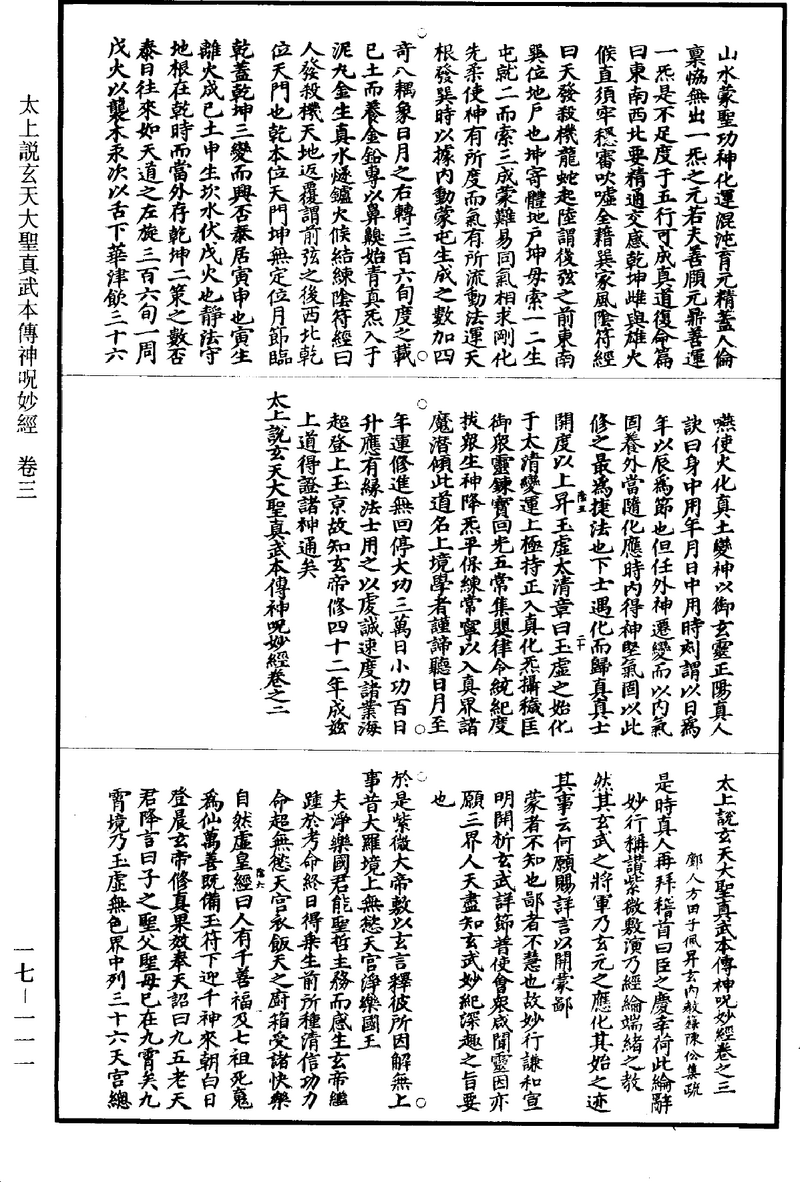 山水蒙聖功神化運混沌育元精蓋人倫
禀恊無出一炁之元若夫善願元鼎善運
一炁是不足度于五行可成真道復命篇
曰東南西北要精通交感乾坤雌與雄火
候直須牢穩審吹噓全藉巽家風陰符經
曰天發殺機龍蛇起陸謂後弦之前東南
巽位地戶也坤寄體地戶坤毋索一二生
屯就二而索三成蒙難易同氣相求剛化
先柔使神有所度而氣有所流動法運天
根發巽時以據內動蒙屯生成之數加四
竒八耦象日月之右轉三百六旬度之載
巳土而養金鉛專以鼻鍊始青真炁入于
泥丸金生真水燧鑪火候結練陰符經曰
人發殺機天地返覆謂前弦之後西北乾
位天門也乾本位天門坤無定位月節臨
乾蓋乾坤三變而興否泰居寅申也寅生
離火成巳土申生坎水伏戊火也靜法守
地根在乾時而當外存乾坤二策之數否
泰日往來如天道之左旋三百六旬一周
戊火以襲木汞次以舌下華津飲三十六
嚥使火化真土變神以御玄靈正陽真人
訣曰身中用年月日中用時刻謂以日為
年以辰為節也但任外神遷變而以內氣
固養外當隨化應時內得神堅氣固以此
修之最為捷法也下士遇化而歸真真士
開度以上昇玉虛太清章曰玉虛之始化
于太清變運上極持正入真化炁攝穢匡
御眾靈鍊寶回光五常集嬰律令統紀度
找眾生神降炁平保練常寧以入真界諸
魔潛傾此道名上境學者謹諦聽日月至
年運修進無回停大功三萬日小功百日
升應有緣法士用之以虔誠速度諸業海
超登上玉京故知玄帝修四十二年成茲
上道得證諸神通矣
太上說玄天大聖真武本傳神呪妙經卷之二
太上說玄天大聖真武本傳神呪妙經卷之三
鄧人方田子佩昇玄內敕籙陳伀集疏
是時真人再拜稽首曰臣之慶幸荷此綸辭
妙行稱讚紫微敷演乃經綸端緒之教
然其玄武之將軍乃玄元之應化其始之迹
其事云何願賜詳言以開蒙鄙
蒙者不知也鄙者不慧也故妙行謙和宣
明開析玄武詳節普使會眾咸聞靈因亦
願三界人天盡知玄武妙紀深趣之旨要
也
於是紫微大帝敷以玄言釋彼所因解無上
事昔大羅境上無慾天宮淨樂國王
夫淨樂國君能聖哲主務而感生玄帝繼
踵於考命終日得乘生前所種清信功力
命超無慾天宮衣飯天之廚箱受諸快樂
自然虛皇經曰人有千善福及七祖死䰟
為仙萬善既備玉符下迎千神來朝白日
登晨玄帝修真果效奉天詔曰九五老天
君降言曰子之聖父聖母已在九霄矣九
霄境乃玉虛無色界中列三十六天宮總
太上説玄天大聖真武本傳神呪妙經 卷三
一七—一一一